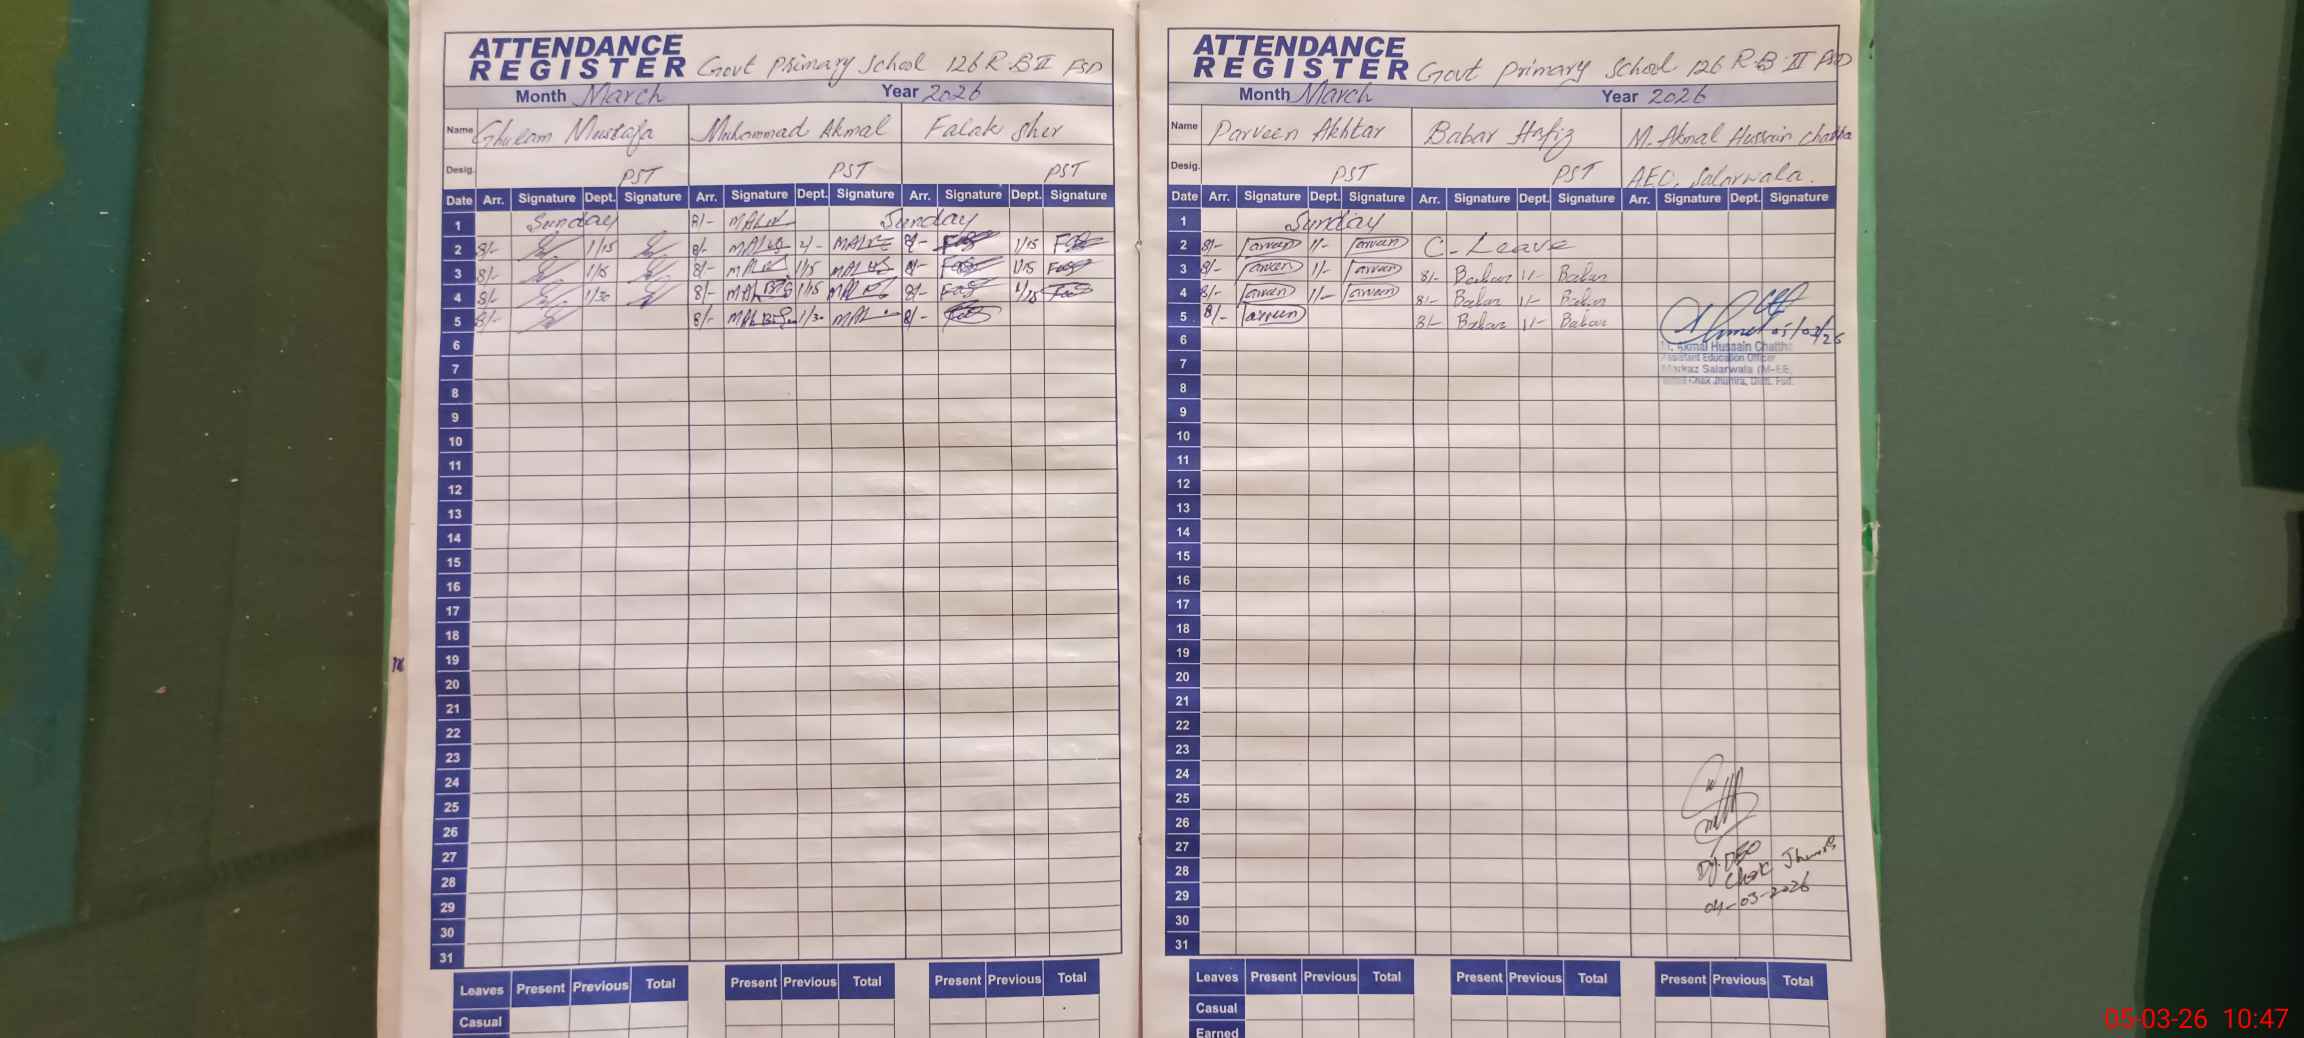 ATTENDANCE
REGISTER Govt Primary School 126 R-B II FSD
Month March Year 2026
Name Ghulam Mustafa Muhammad Akmal Falak Sher
Desig. PST PST PST
Date Arr. Signature Dept. Signature Arr. Signature Dept. Signature Arr. Signature Dept. Signature
1 Sunday 8/- Sunday
2 8/- 1/15 8/- 2/- 8/- 1/15
3 8/- 1/15 8/- 1/15 8/- 1/15
4 8/- 1/30 8/- 1/15 8/- 1/15
5 8/- 8/- 1/30 8/-
6
7
8
9
10
11
12
13
14
15
16
17
18
19
20
21
22
23
24
25
26
27
28
29
30
31
Leaves Present Previous Total Present Previous Total Present Previous Total
Casual
ATTENDANCE
REGISTER Govt Primary School 126 R-B II FSD
Month March Year 2026
Name Parveen Akhtar Babar Hafiz M. Akmal Hussain Chattha
Desig. PST PST AEO, Salarwala.
Date Arr. Signature Dept. Signature Arr. Signature Dept. Signature Arr. Signature Dept. Signature
1 Sunday
2 8/- Parveen 1/- Parveen C-Leave
3 8/- Parveen 1/- Parveen 8/- Babar 1/- Babar
4 8/- Parveen 1/- Parveen 8/- Babar 1/- Babar
5 8/- Parveen 8/- Babar 1/- Babar
6 05/03/26
M. Akmal Hussain Chattha
7 Assistant Education Officer
Markaz Salarwala (M-EE,
8 Chak Jhumra, Distt. Fsd.
9
10
11
12
13
14
15
16
17
18
19
20
21
22
23
24
25
26
27
28 Dy. DEO
Chak Jhumra
29 04-03-2026
30
31
Leaves Present Previous Total Present Previous Total Present Previous Total
Casual
Earned
05-03-26 10:47